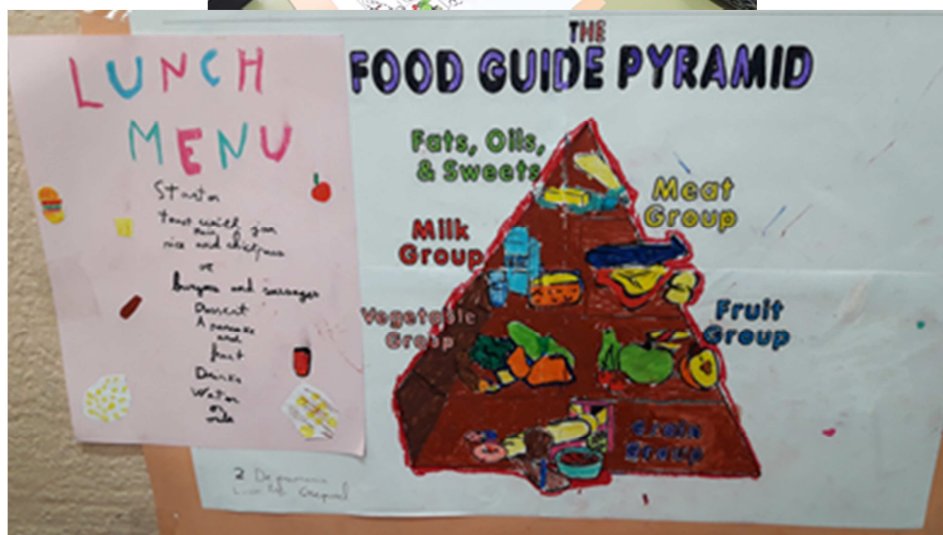 LUNCH
MENU
Starter
rice and chickpeas
or
burgers and sausages
Dessert
A pancake
and
fruit
Drinks
Water
or
THE
FOOD GUIDE PYRAMID
Fats, Oils,
& Sweets
Meat
Group
Milk
Group
Vegetable
Group
Fruit
Group
Grain
Group
2